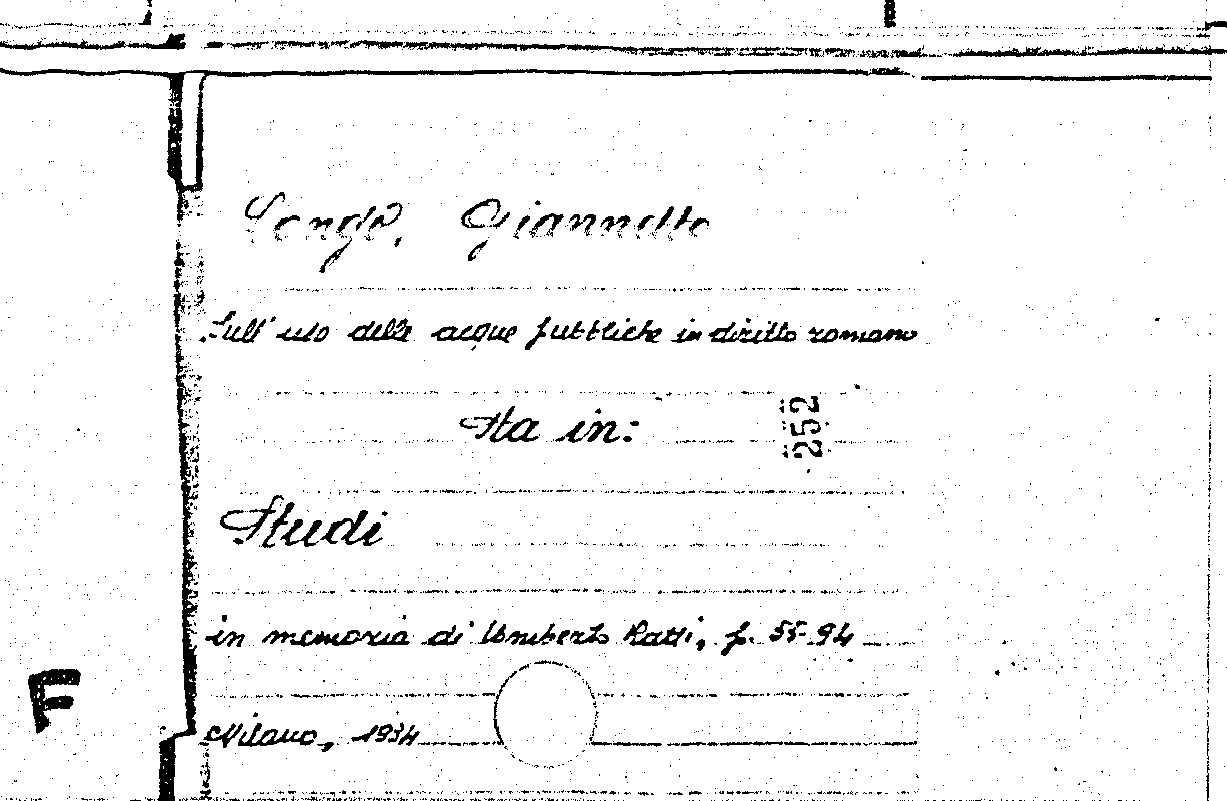 Longo, Giannetto
Sull'uso delle acque pubbliche in diritto romano
Sta in:
252
Studi
in memoria di Umberto Ratti, p. 55-94
Milano, 1934
F